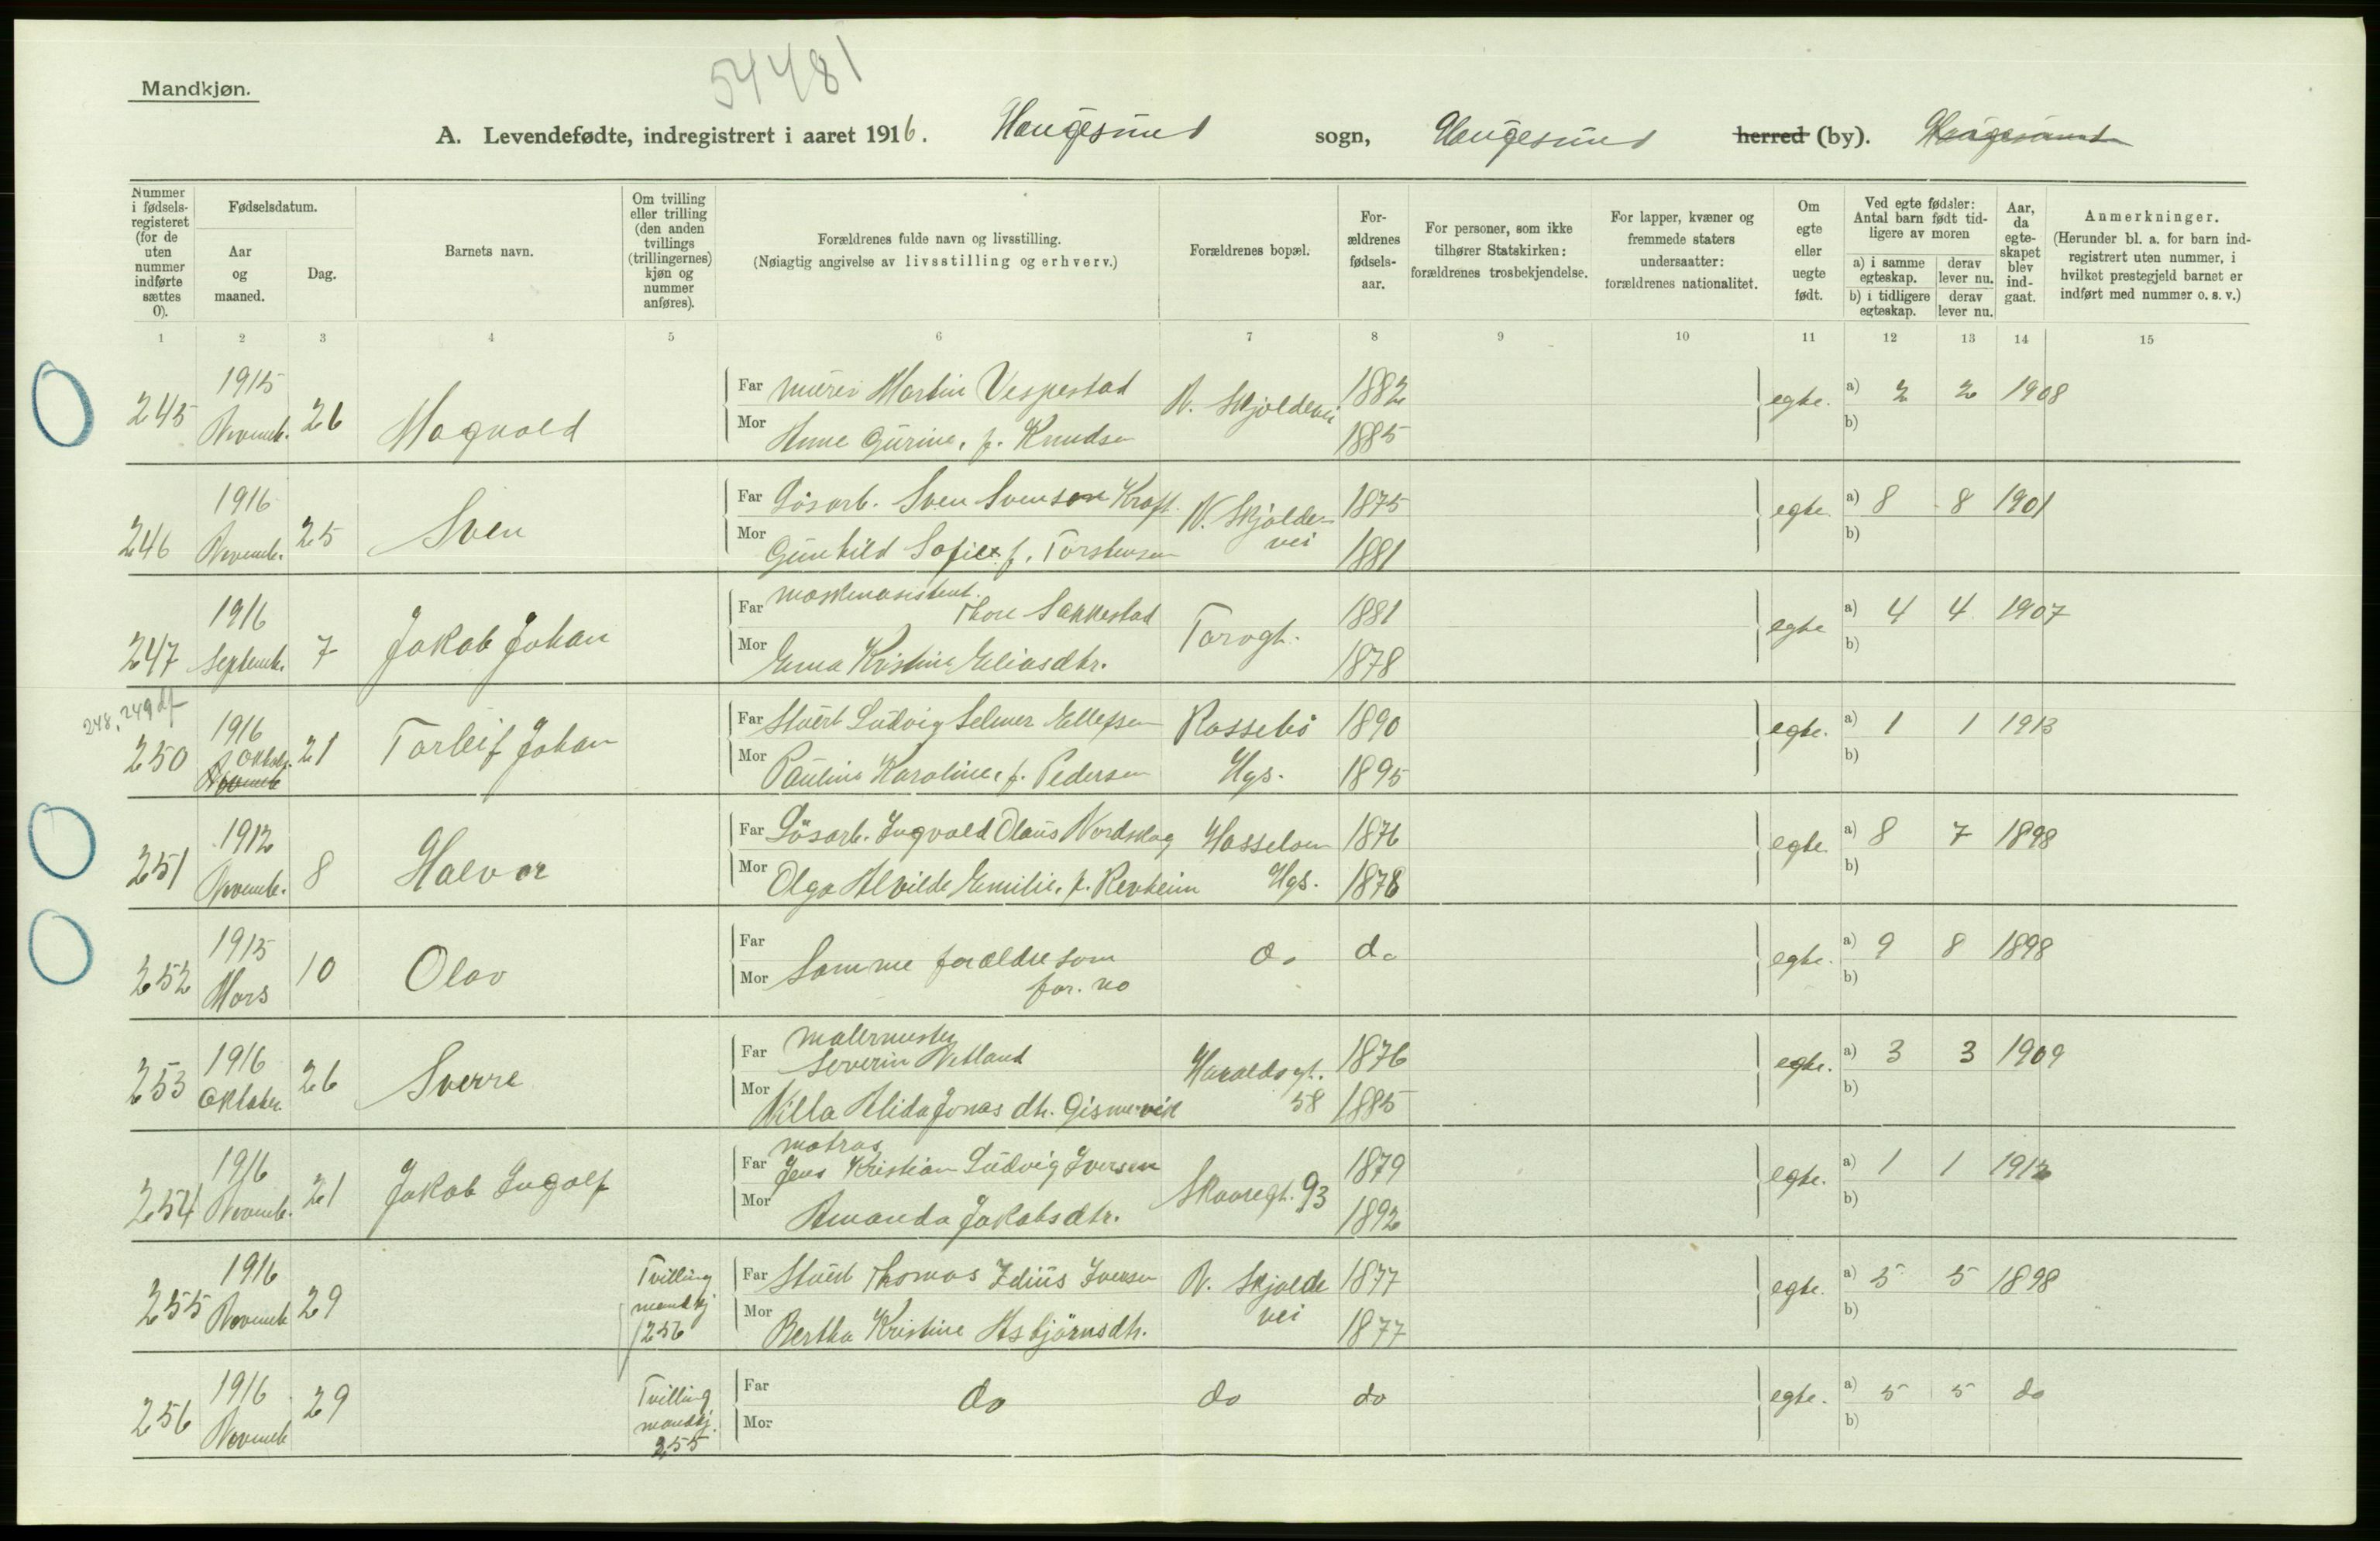 54481
Mandkjøn.
A. Levendefødte, indregistrert i aaret 1916. Haugesund sogn, Haugesund herred (by). Haugesund
Nummer i fødsels-registeret (for de uten nummer indførte sættes 0).
Fødselsdatum.
Aar og maaned.
Dag.
Barnets navn.
Om tvilling eller trilling (den anden tvillings (trillingernes) kjøn og nummer anføres).
Forældrenes fulde navn og livsstilling.
(Nøiagtig angivelse av livsstilling og erhverv.)
Forældrenes bopæl.
For-ældrenes fødsels-aar.
For personer, som ikke tilhører Statskirken: forældrenes trosbekjendelse.
For lapper, kvæner og fremmede staters undersaatter: forældrenes nationalitet.
Om egte eller uegte født.
Ved egte fødsler: Antal barn født tid-ligere av moren
a) i samme egteskap. derav lever nu.
b) i tidligere egteskap. derav lever nu.
Aar, da egte-skapet blev ind-gaat.
Anmerkninger.
(Herunder bl. a. for barn ind-registrert uten nummer, i hvilket prestegjeld barnet er indført med nummer o. s. v.)
1 2 3 4 5 6 7 8 9 10 11 12 13 14 15
245 1915 Novemb. 26 Magnald
Far murer Martin Vespestad N. Skjoldevei 1882 egte. a) 2 2 1908
Mor Anne Gurine, f. Knudsen 1885 b)
246 1916 Novemb. 25 Sven
Far Løsarb. Sven Svenson Kraft N. Skjolde- 1875 egte. a) 8 8 1901
Mor Gunhild Sofie f. Torstensen vei 1881 b)
247 1916 Septemb. 7 Jakob Johan
Far maskinasistent. Thore Sakkestad Torvgt. 1881 egte a) 4 4 1907
Mor Erna Kristine Eliasdtr. 1878 b)
248, 249 df
250 1916 Oktob. Novemb 21 Torleif Johan
Far Stuert Ludvig Selmer Ellefsen Rossebø 1890 egte. a) 1 1 1913
Mor Pauline Karoline, f. Pedersen Hgs. 1895 b)
251 1912 Novemb. 8 Halvor
Far Løsarb. Ingvald Olaus Nordskog Hasseloen 1876 egte. a) 8 7 1898
Mor Olga Alvilde Emilie, f. Revheim Hgs. 1878 b)
252 1915 Mars 10 Olav
Far Samme forældre som do do egte. a) 9 8 1898
Mor for. no b)
253 1916 Oktober. 26 Sverre
Far malermester Severin Vetland Haraldsgt. 1876 egte. a) 3 3 1909
Mor Villa Alida Jonas dtr. Gismervik 58 1885 b)
254 1916 Novemb. 21 Jakob Ingolf
Far matros Jens Kristian Ludvig Iversen Skaaregt. 93 1879 egte. a) 1 1 1912
Mor Amanda Jakobsdtr. 1892 b)
255 1916 Novemb 29 Tvilling mandkj 256
Far Stuert Thomas Iversen N. Skjolde 1877 egte. a) 5 5 1898
Mor Bertha Kristine Asbjørnsdtr. vei 1877 b)
256 1916 Novemb 29 Tvilling mandkj. 255
Far do do do egte. a) 5 5 do
Mor b)